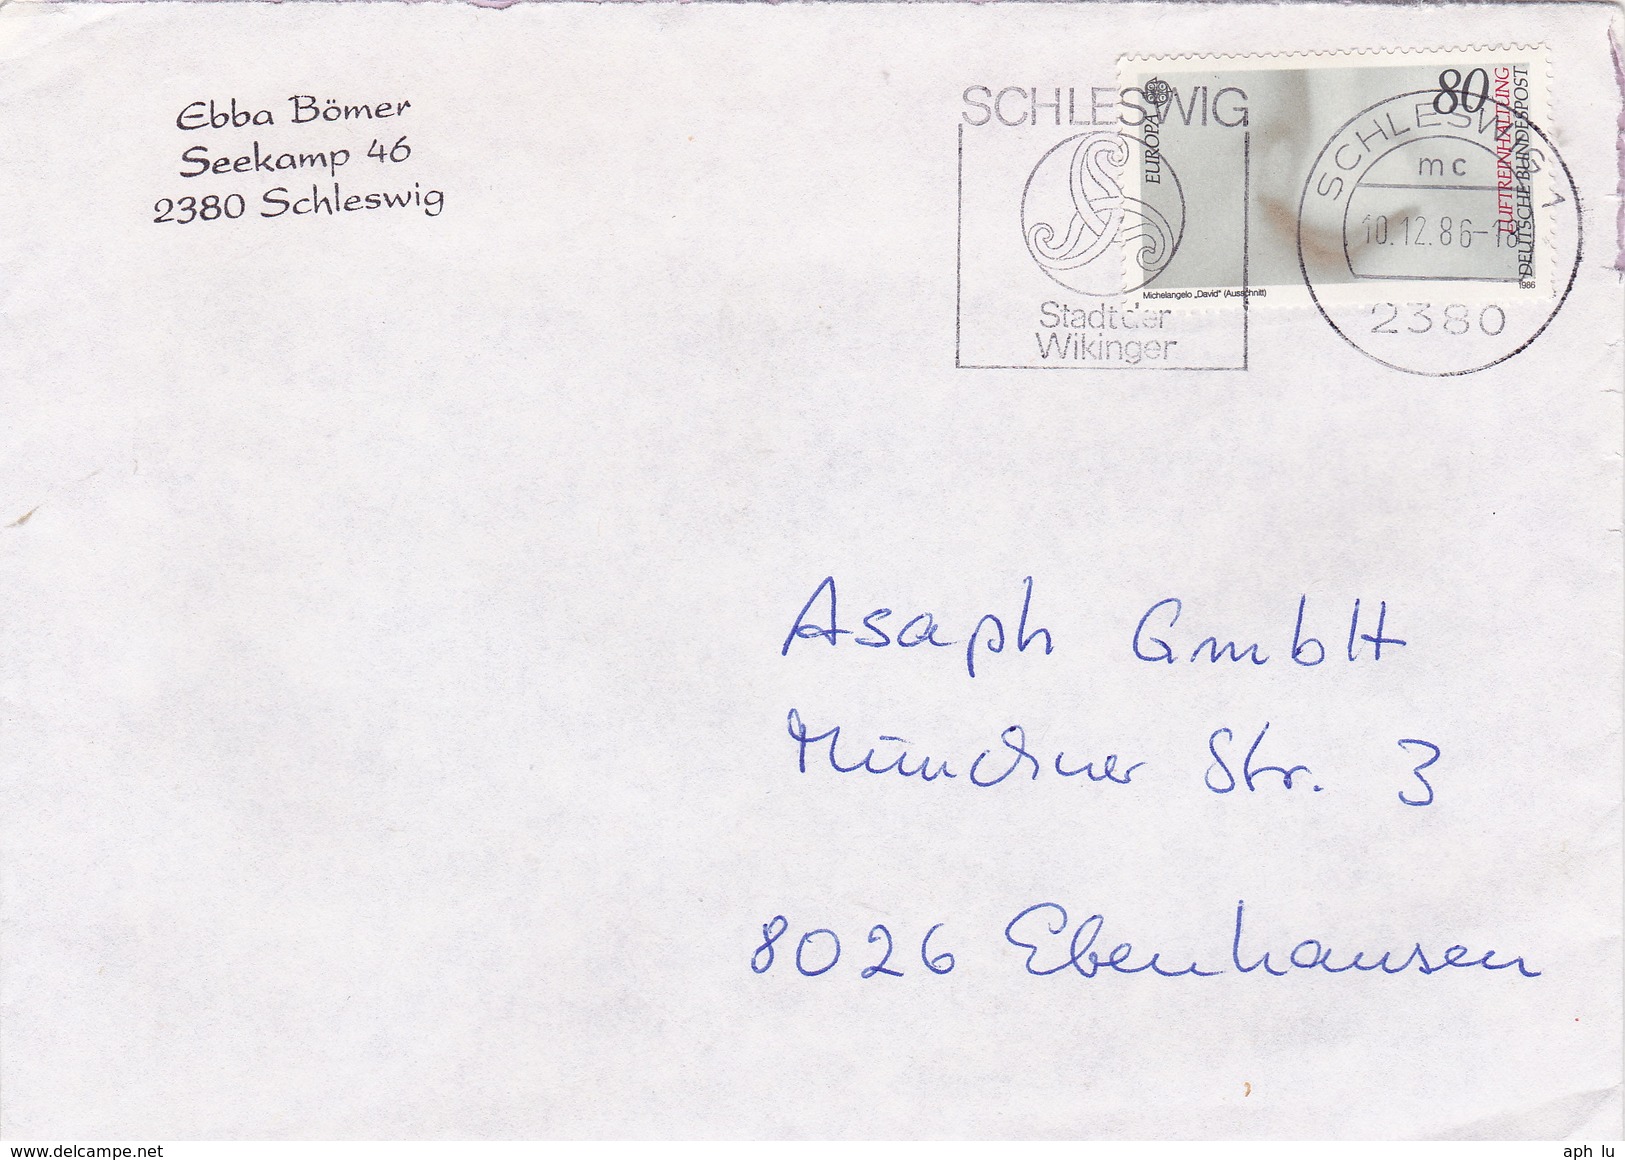 Ebba Bömer
Seekamp 46
2380 Schleswig
SCHLESWIG
Stadt der
Wikinger
EUROPA
80
LUFTREINHALTUNG
DEUTSCHE BUNDESPOST
Michelangelo „David“ (Ausschnitt)
1986
SCHLESWIG 1
mc
10.12.86-18
2380
Asaph GmbH
Münchner Str. 3
8026 Ebenhausen
www.delcampe.net
aph lu